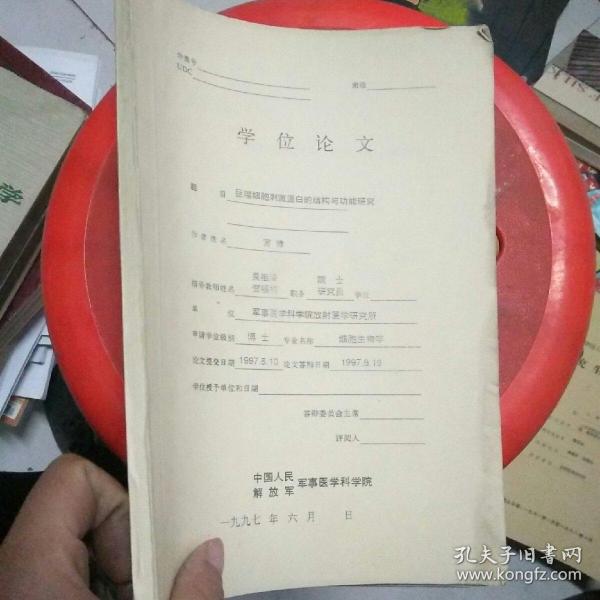 分类号
UDC
密级
学位论文
题 目 巨噬细胞刺激蛋白的结构与功能研究
作者姓名
吴祖泽 院士
指导教师姓名 贺福初 职务 研究员 学位
单 位 军事医学科学院放射医学研究所
申请学位级别 博士 专业名称 细胞生物学
论文提交日期 1997.6.10 论文答辩日期 1997.6.19
学位授予单位和日期
答辩委员会主席
评阅人
中国人民
解放军 军事医学科学院
一九九七年六月 日
学
孔夫子旧书网
www.kongfz.com